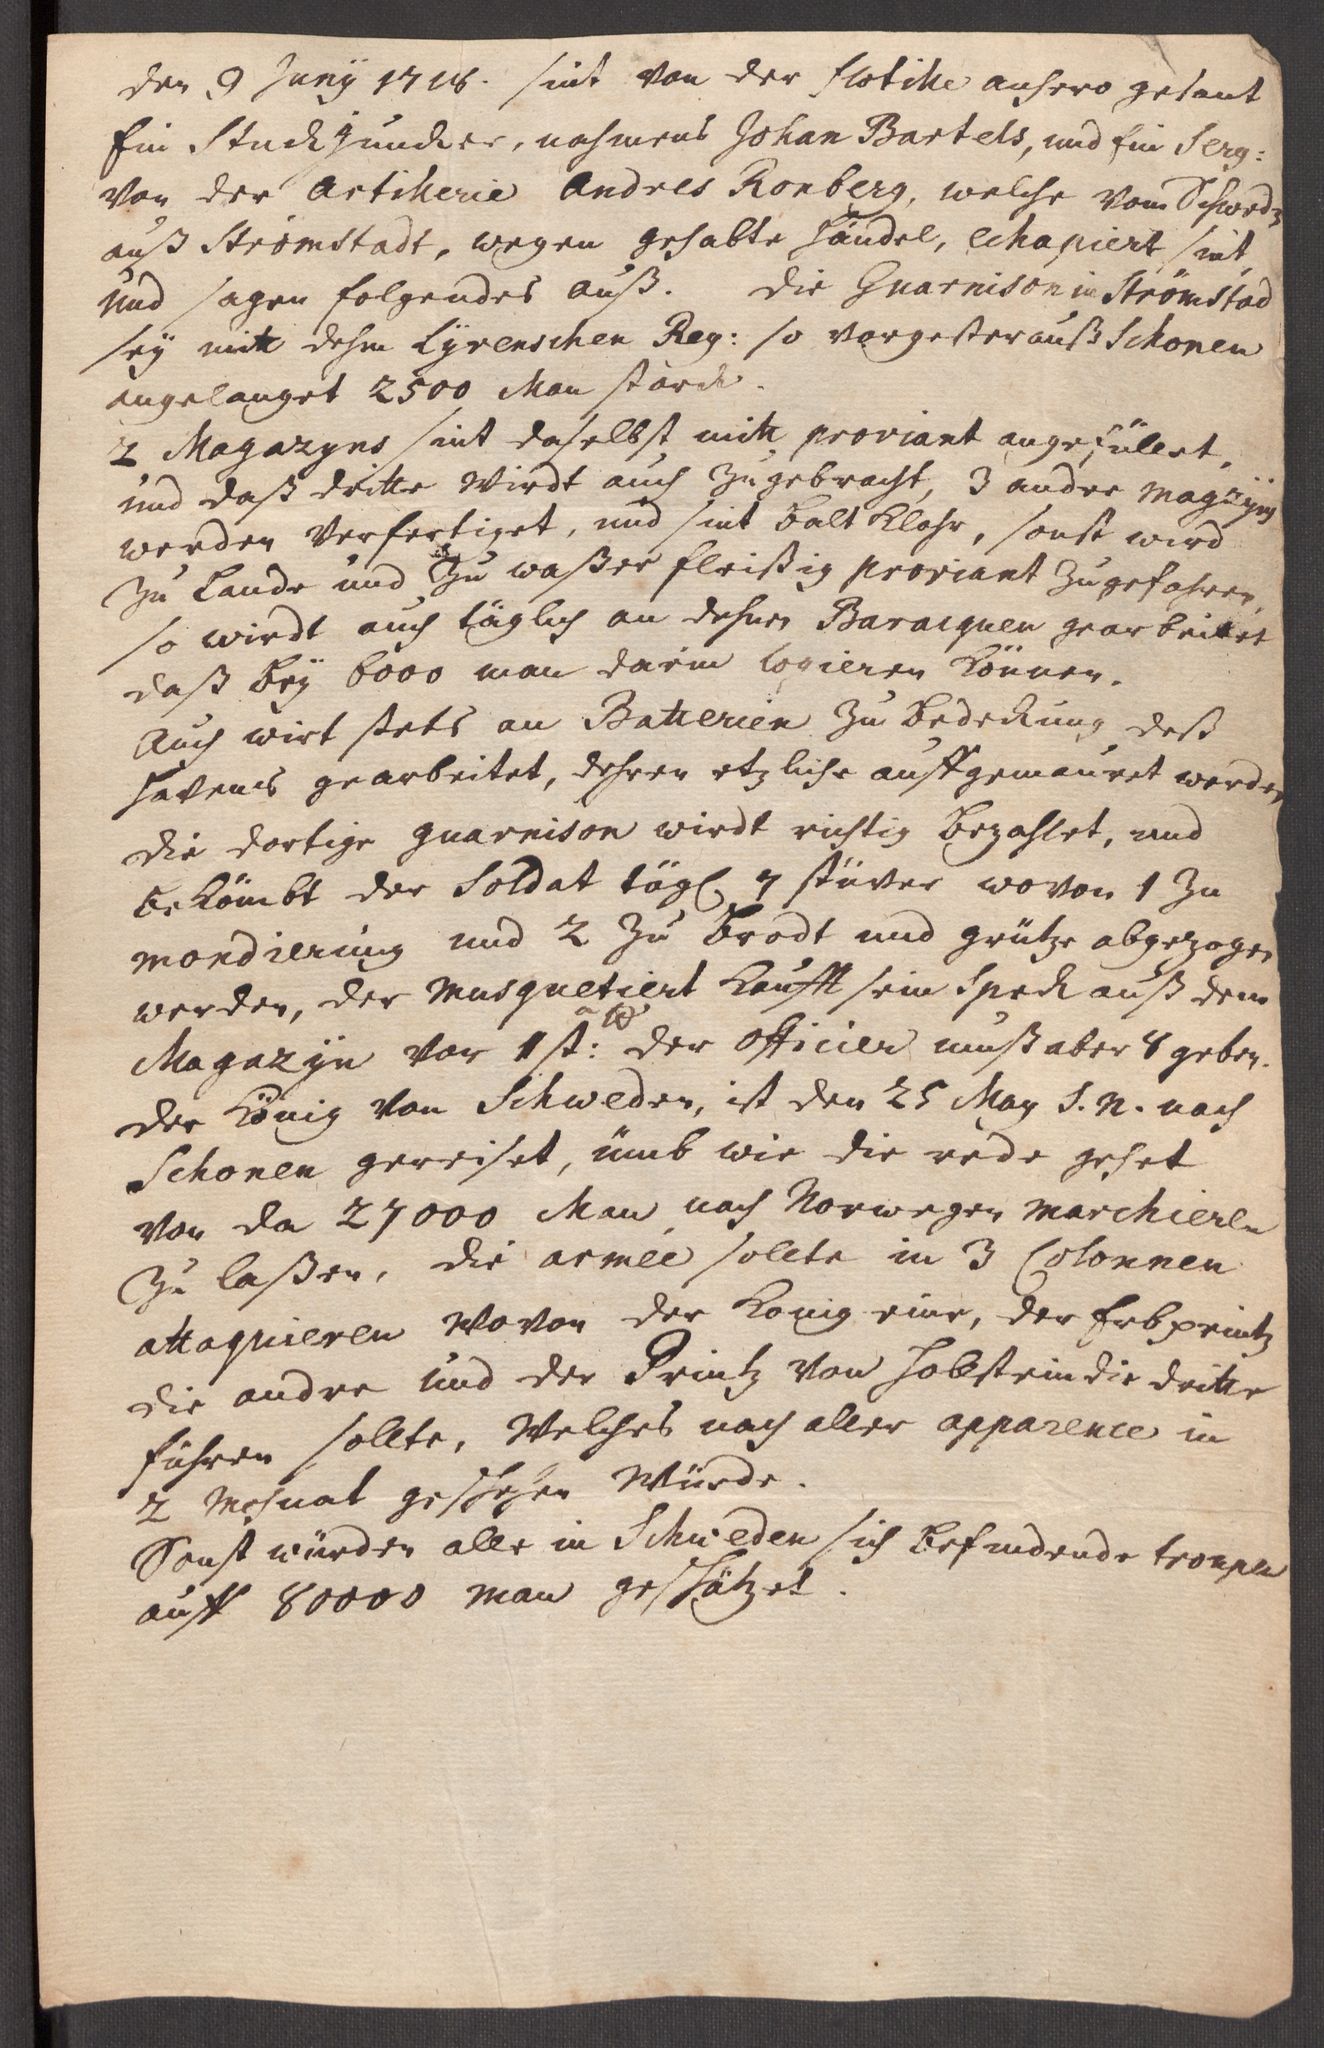 den 9 Junÿ 1718. sint von der flotille anhero gesant
Ein Stuck Juncker, nahmens Johan Bartels, und Ein Serg:
von der Artillerie Andres Ronberg, welche vom Schwed:
auß Strömstadt, wegen gehabte händel, echapiert sint,
und sagen folgendes auß. Die Guarnison in Strömstad
seÿ mitt dehm Lÿrenschen Reg: so vorgester auß Schonen
angelanget 2500 Man starck.
2 Magazyns sint daselbst mitt proviant angefüllet,
und daß dritte wirdt auch zugebracht, 3 andre magzÿns
werden verfertiget, und sint balt klahr, sonst wird
zu Lande und zu waßer fleißig proviant zugefahren,
so wirdt auch täglich an dehnen Baracquen gearbeitet
daß beÿ 6000 man darin logieren können.
Auch wirt stets an Batterien zu bedeckung deß
havens gearbeitet, dehren etzliche auff gemauret werden
die dortige guarnison wirdt richtig bezahlet, und
bekömbt der Soldat tägl 7 stüver wovon 1 zu
mondierung und 2 zu brodt und grütze abgezogen
werden, der musquetiert kaufft sein Speck auß dem
Magazÿn vor 1 st: a ℔ der officier muß aber 8 geben.
der König von Schweden, ist den 25 May S. N. nach
Schonen gereiset, umb wie die rede gehet
von da 27000 Man nach Norwegen marchieren
zu laßen, die armée sollte in 3 Colonnen
attaquieren wovon der König eine, der Erbprintz
die andre und der Printz von Holstein die dritte
führen sollte, welches nach aller apparence in
2 Mohnat geschehen würde.
Sonst würden alle in Schweden sich befindende troupen
auff 80000 man geschätzet.